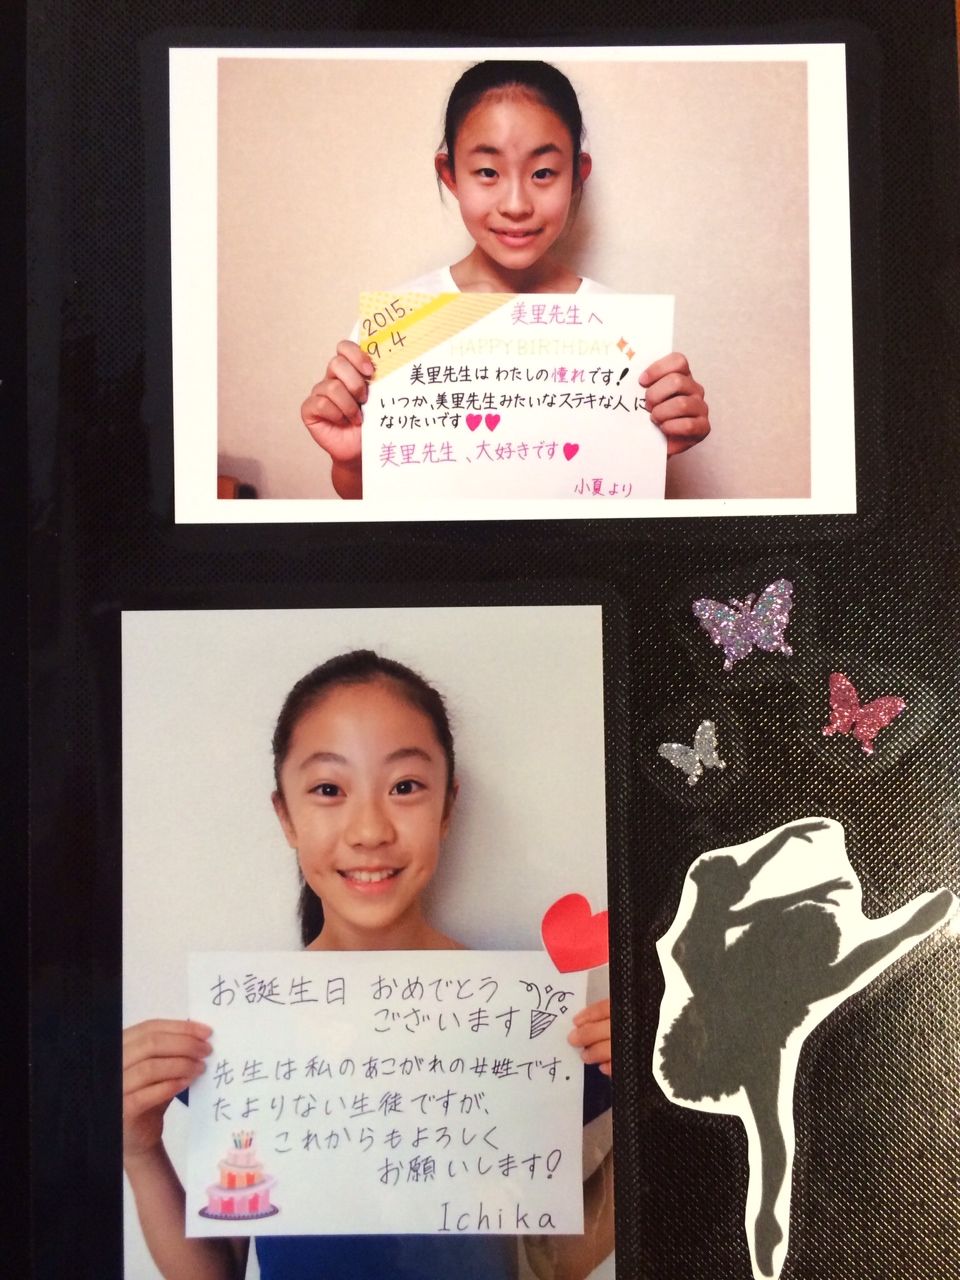 2015.
9.4
美里先生へ
HAPPY BIRTHDAY
美里先生は わたしの憧れです!
いつか、美里先生みたいなステキな人に
なりたいです♥♥
美里先生、大好きです♥
小夏より
お誕生日 おめでとう
ございます
先生は私のあこがれの女性です.
たよりない生徒ですが、
これからもよろしく
お願いします!
Ichika